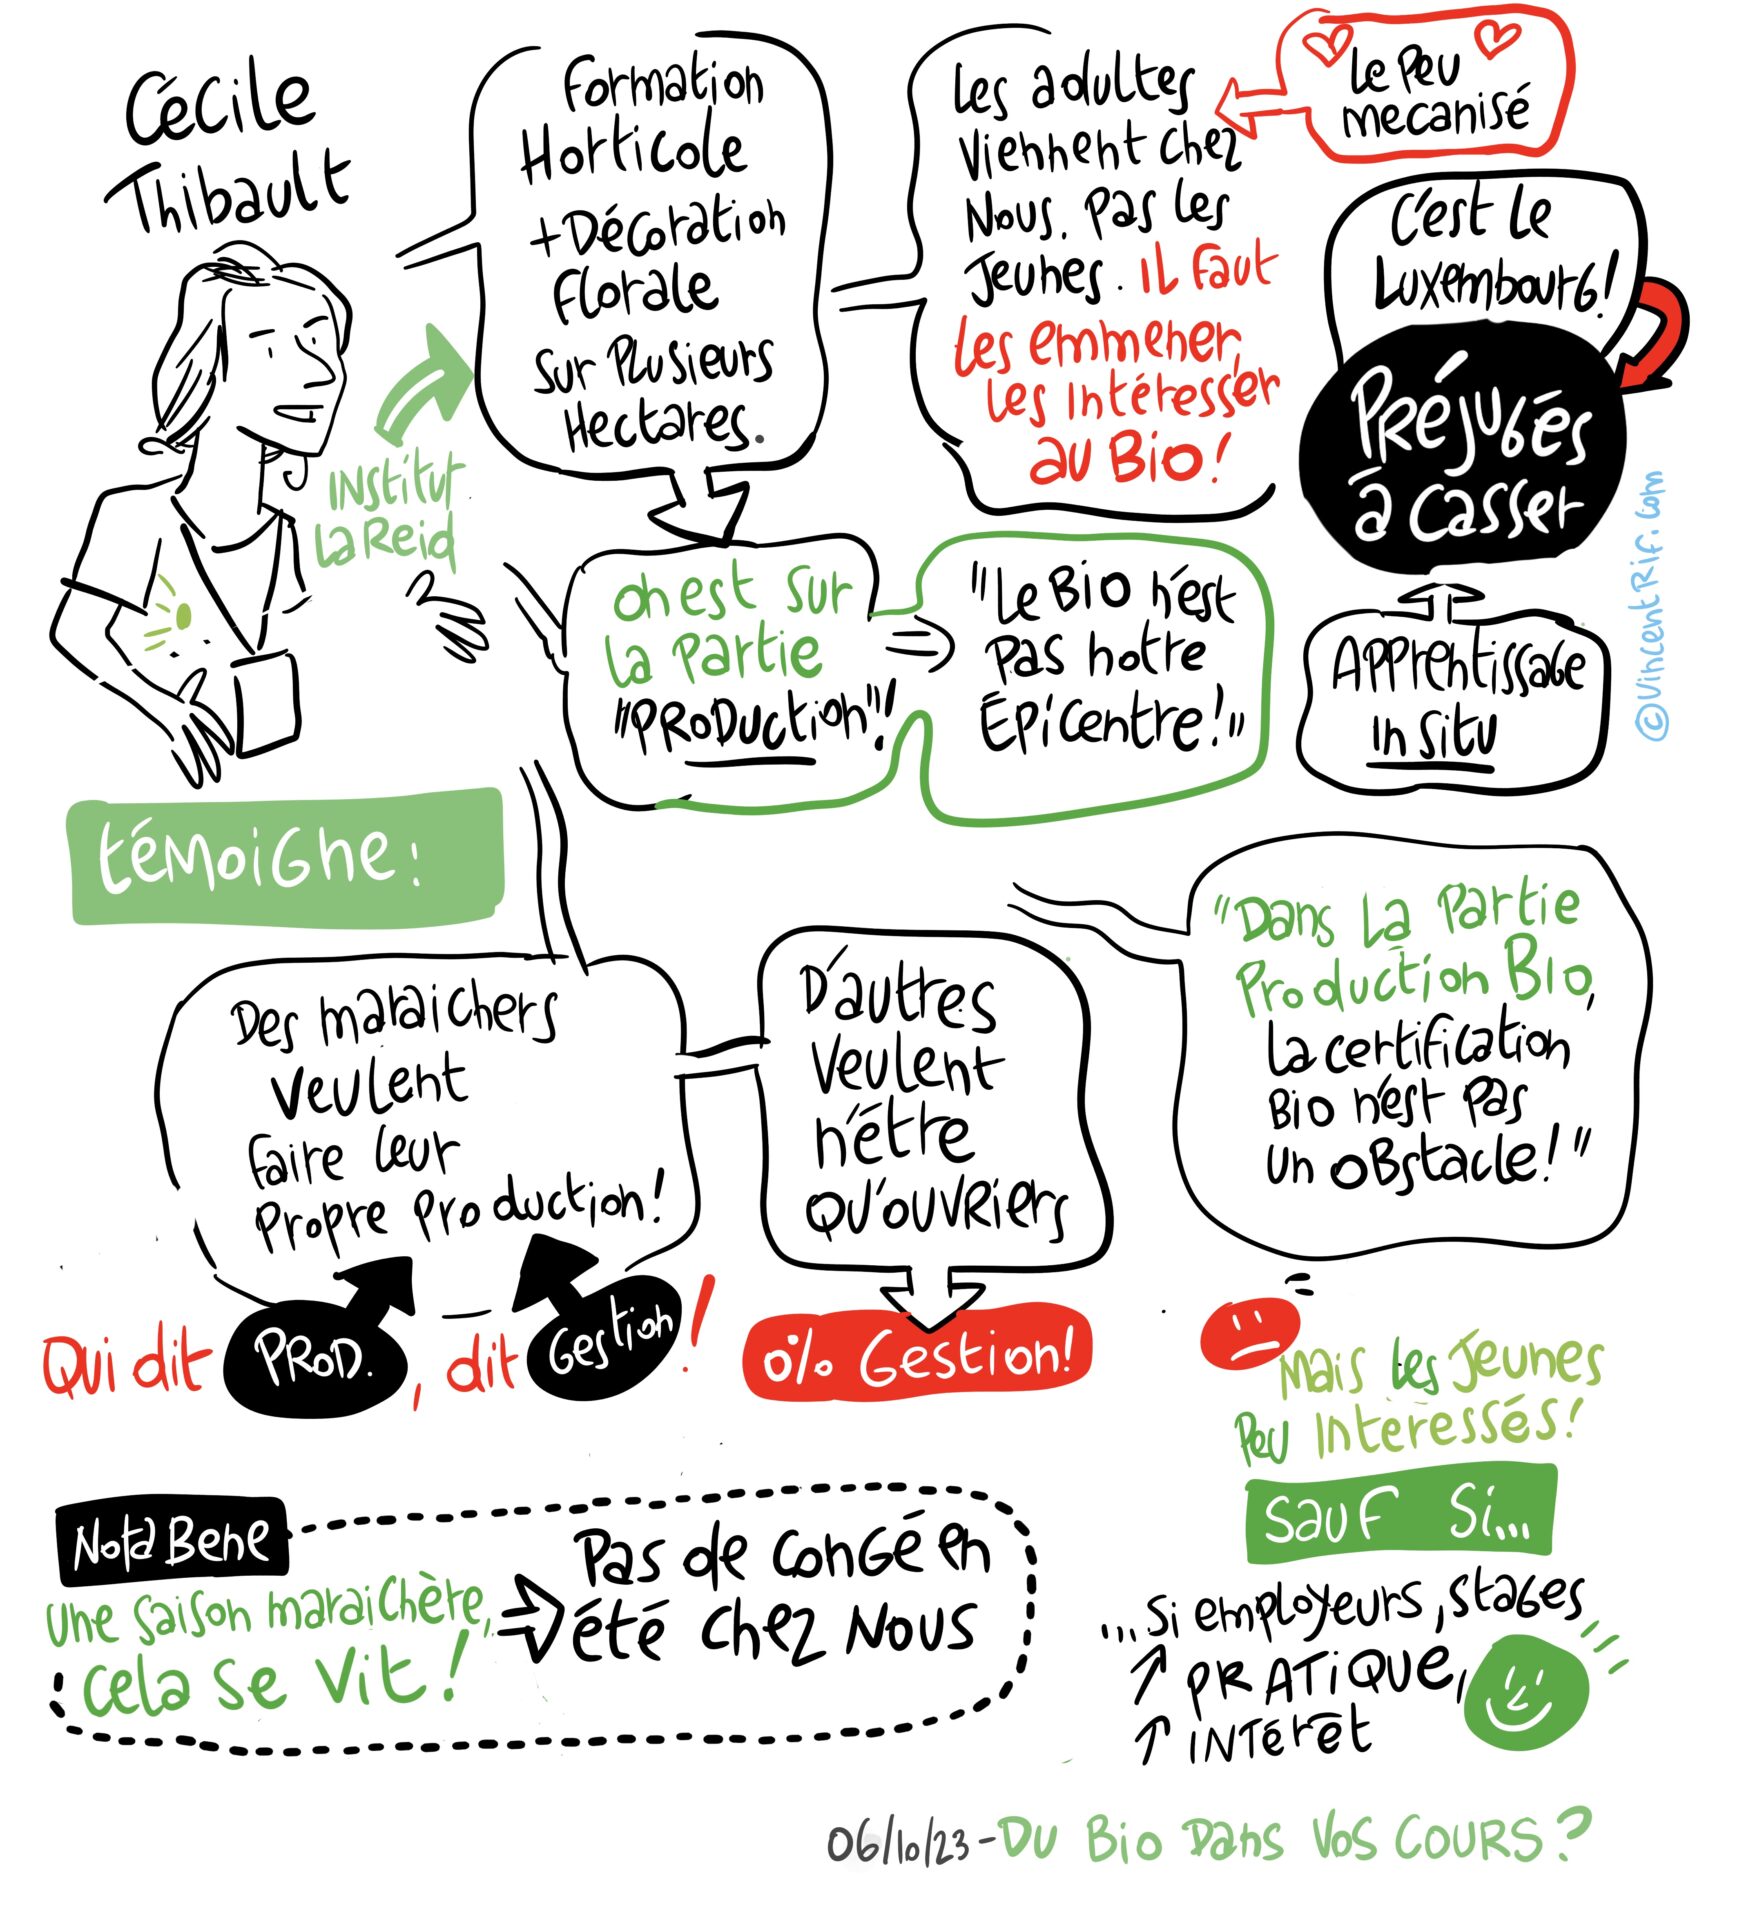 Cécile
Thibault
Institut
La Reid
Formation
Horticole
+ Décoration
Florale
sur plusieurs
Hectares.
Les adultes
viennent chez
nous. Pas les
jeunes. Il faut
les emmener,
les intéresser
au Bio !
Le peu
mecanisé
C'est le
Luxembourg !
Préjugés
à casser
Apprentissage
in situ
©VincentRif.com
on est sur
la partie
"Production" !
"Le Bio n'est
pas notre
Épicentre !"
témoigne :
Des maraichers
veulent
faire leur
propre production !
D'autres
veulent
n'être
qu'ouvriers
"Dans la partie
Production Bio,
la certification
Bio n'est pas
un obstacle !"
Qui dit Prod., dit Gestion !
0% Gestion !
Mais les jeunes
peu intéressés !
Sauf si...
...si employeurs, stages
↑ pratique,
↑ intérêt
Nota Bene
une saison maraichère,
cela se vit !
Pas de congé en
été chez nous
06/10/23 - Du Bio dans vos cours ?